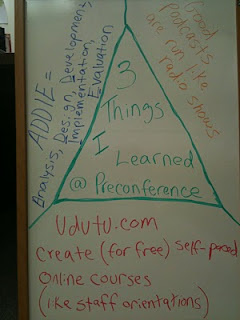 ADDIE =
Analysis, Design, Development,
Implementation,
Evaluation
Good
Podcasts
are run like
radio shows
3
Things
I
Learned
@ Preconference
Udutu.com
Create (for free) self-paced
Online courses
(like staff orientations)